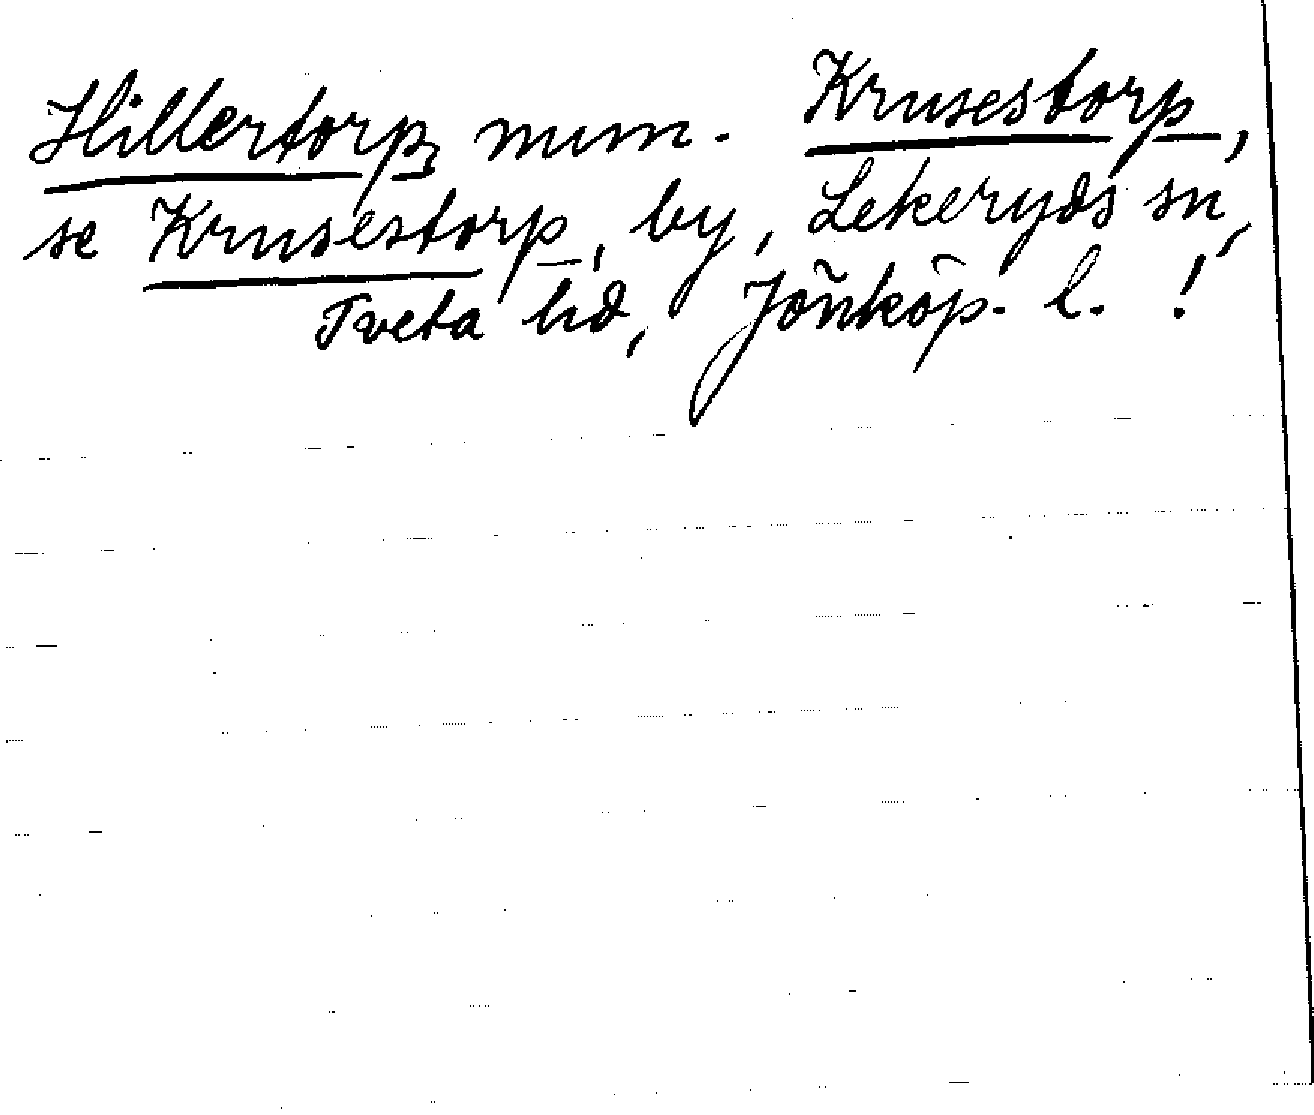 Hillertorp, num. Krusestorp,
se Krusestorp, by, Lekeryds sn,
Tveta hd, Jönköp. l. !